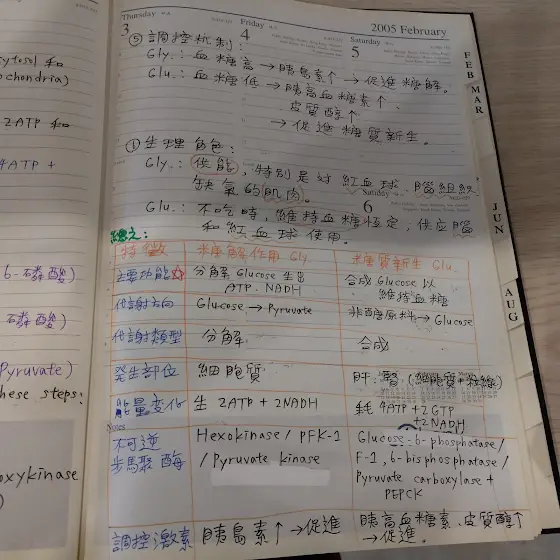 ytosol 和
ochondria)
2ATP 和
4ATP +
6-磷酸)
磷酸)
Pyruvate)
hese steps:
oxykinase
)
Thursday
3
Friday
4
2005 February
Saturday
5
⑤ 調控机制:
Gly.: 血糖高 → 胰島素↑ → 促進糖解。
Glu.: 血糖低 → 胰高血糖素↑、
皮質醇↑
→ 促進糖質新生。
① 生理角色:
Gly.: 供能, 特別是对紅血球、腦組織
缺氧的肌肉。
Sunday
6
Glu.: 不吃時, 維持血糖恆定, 供应腦
和紅血球使用。
總之:
特徵 糖解作用 Gly. 糖質新生 Glu.
主要功能 分解 Glucose 生出 ATP、NADH 合成 Glucose 以維持血糖
代謝方向 Glucose → Pyruvate 非醣原料 → Glucose
代謝類型 分解 合成
発生部位 細胞質 肝、腎 (細胞質+粒線)
能量变化 生 2ATP + 2NADH 耗 4ATP + 2GTP + 2NADH
Notes
不可逆步驟酶 Hexokinase / PFK-1 / Pyruvate kinase Glucose-6-phosphatase / F-1,6-bisphosphatase / Pyruvate carboxylase + PEPCK
調控激素 胰島素↑ → 促進 胰高血糖素、皮質醇↑ → 促進。
FEB
MAR
JUN
AUG